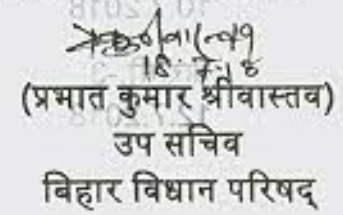 18.7.18
(प्रभात कुमार श्रीवास्तव)
उप सचिव
बिहार विधान परिषद्